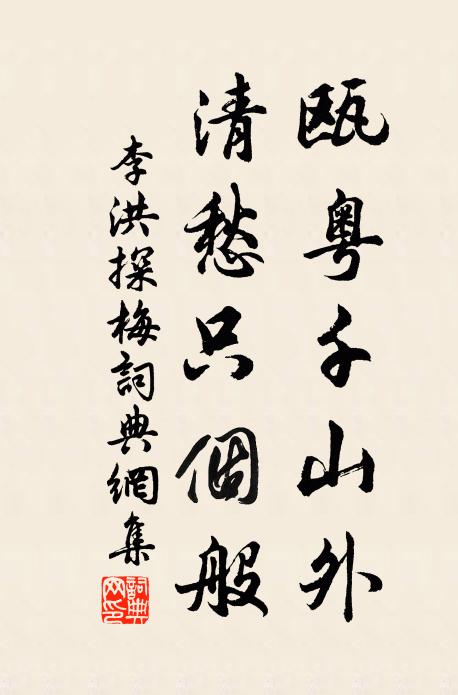 瓯粤千山外
清愁只個般
李洪探梅詞典網集
詞典网印